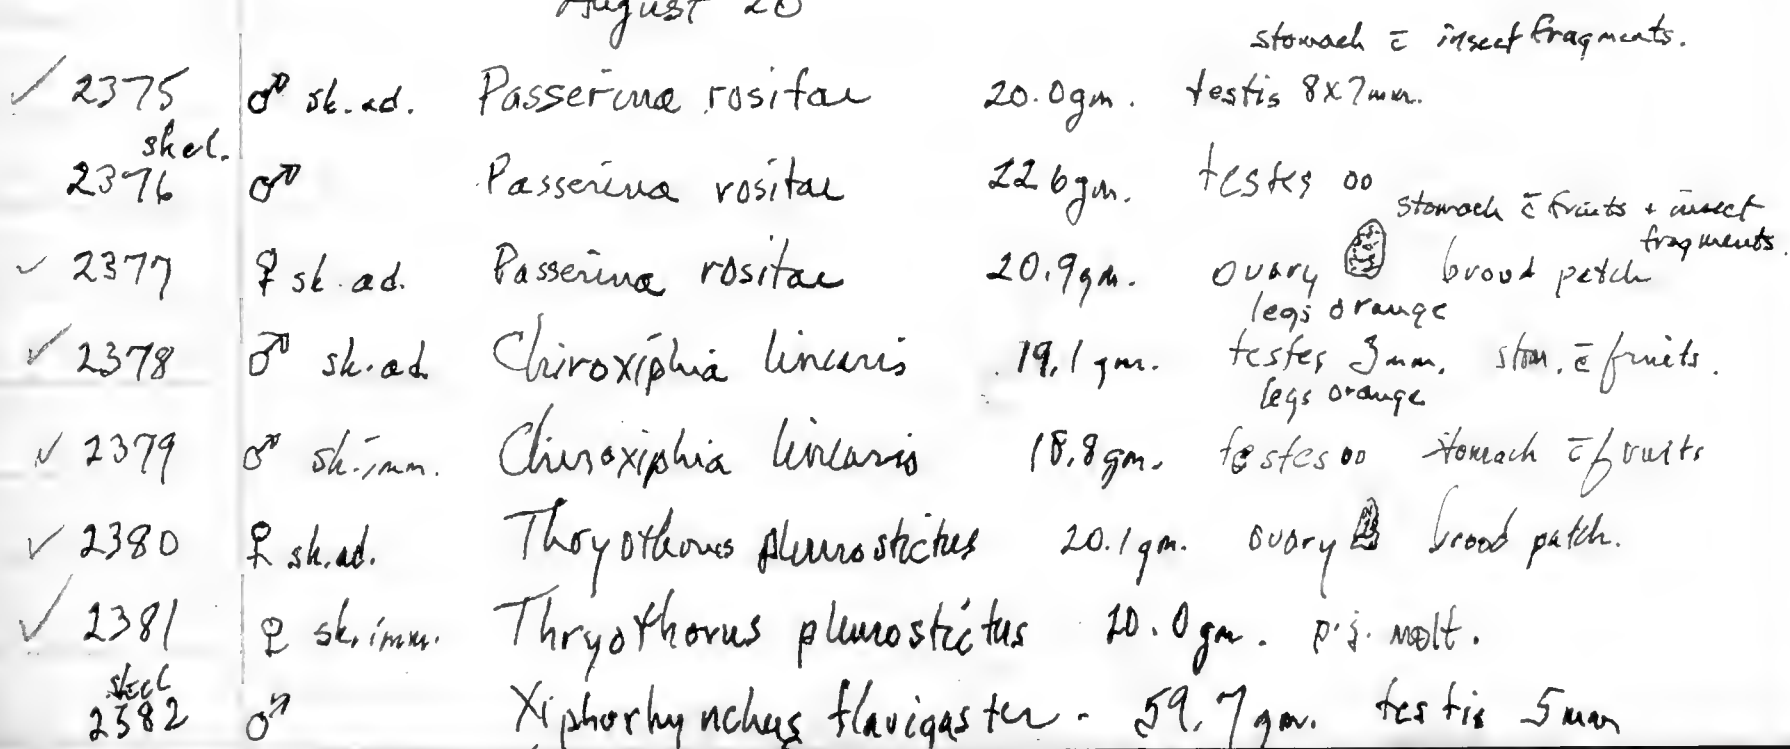 August 20
stomach c̄ insect fragments.
✓ 2375 ♂ sk. ad. Passerina rositae 20.0 gm. testis 8x7mm.
skel.
2376 ♂ Passerina rositae 22.6 gm. testes oo
stomach c̄ fruits + insect
fragments.
✓ 2377 ♀ sk. ad. Passerina rositae 20.9 gm. ovary brood patch
legs orange
✓ 2378 ♂ sk. ad. Chiroxiphia linearis 19.1 gm. testes 3mm. stom. c̄ fruits.
legs orange
✓ 2379 ♂ sk. imm. Chiroxiphia linearis 18.8 gm. testes oo stomach c̄ fruits
✓ 2380 ♀ sk. ad. Thryothorus pleurostictus 20.1 gm. ovary brood patch.
✓ 2381 ♀ sk. imm. Thryothorus pleurostictus 20.0 gm. p.j. molt.
skel
2382 ♂ Xiphorhynchus flavigaster - 59.7 gm. testis 5mm